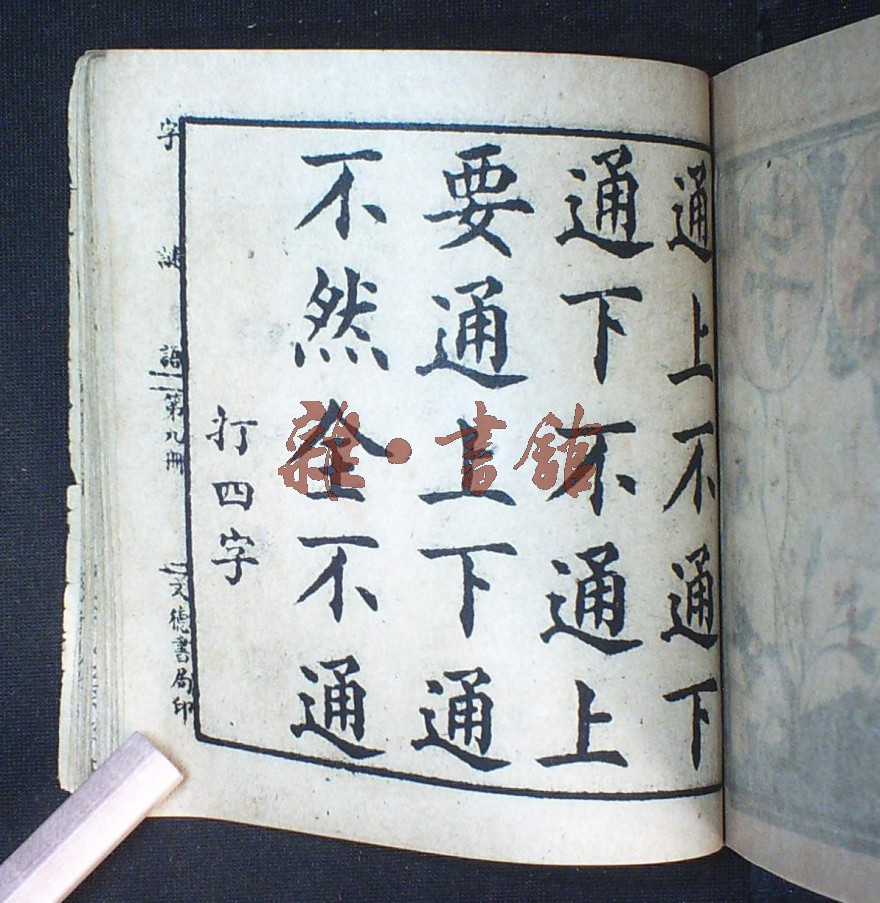 通上不通下
通下不通上
要通上下通
不然全不通
打四字
字謎語 第九冊 文德書局印
雜·書館